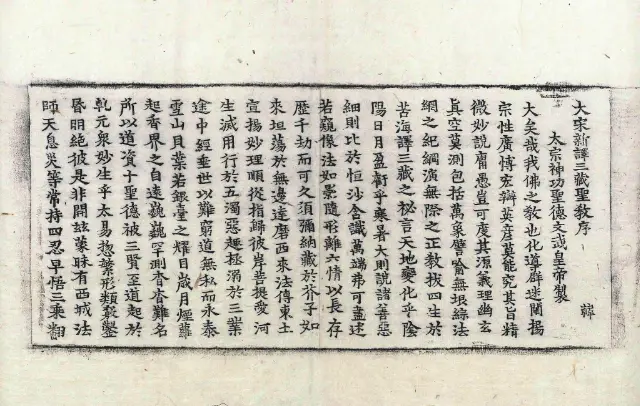 大宋新譯三藏聖教序
太宗神功聖德文武皇帝製
韓
大矣哉我佛之教也化導群迷闡揚
宗性廣博宏辯英彥莫能究其旨精
微妙說庸愚豈可度其源義理幽玄
真空莫測包括萬象譬喻無垠綜法
網之紀綱演無際之正教拔四生於
苦海譯三藏之秘言天地變化乎陰
陽日月盈虧乎寒暑大則說諸善惡
細則比於恒沙含識萬端弗可盡述
若窺像法如影隨形離六情以長存
歷千劫而可久須彌納藏於芥子如
來坦蕩於無邊達磨西來法傳東土
宣揚妙理順從指歸彼岸菩提愛河
生滅用行於五濁惡趣拯溺於三業
途中經垂世以難窮道無私而永泰
雪山貝葉若銀臺之耀目歲月煙蘿
起香界之自遠巍巍罕測杳杳難名
所以道資十聖德被三賢至道起於
乾元衆妙生乎太易惣繁形類竅鑿
昏明絶彼是非開茲蒙昧有西域法
師天息災等常持四忍早悟三乘翻